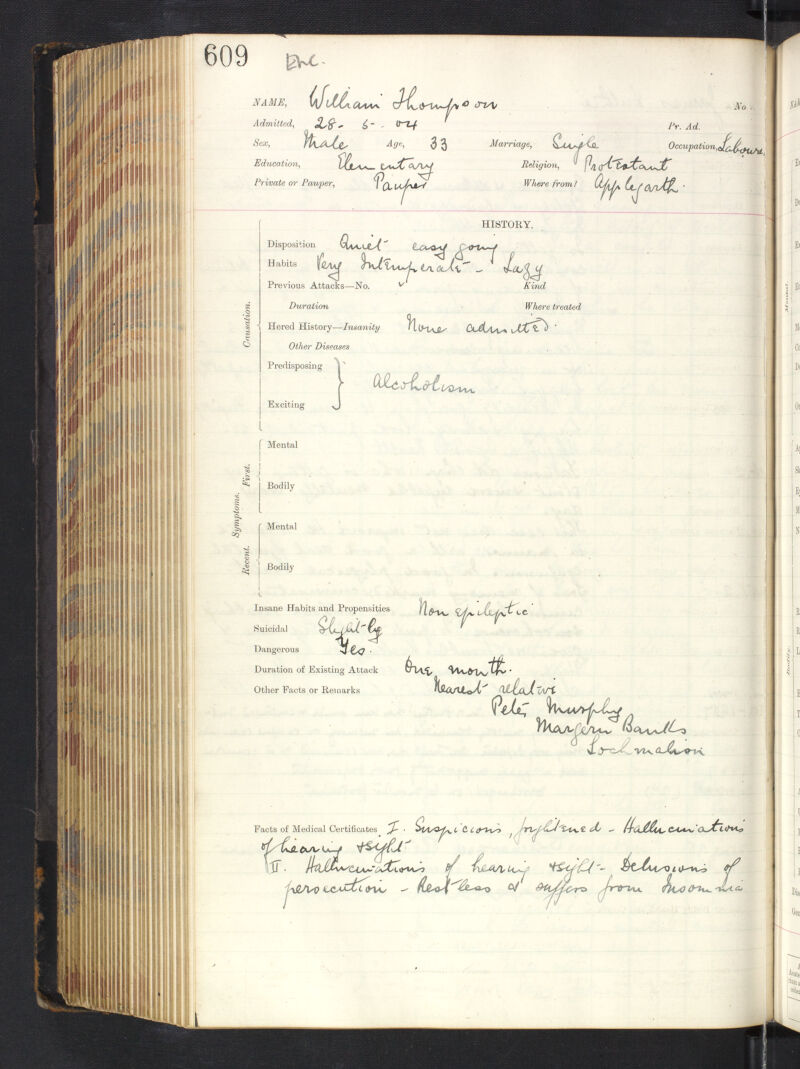 609
NAME, William Thompson No
Admitted, 28 - 5 - 04 Pr. Ad.
Sex, Male Age, 33 Marriage, Single Occupation, Labourer
Education, Elementary Religion, Protestant
Private or Pauper, Pauper Where from? Applegarth
HISTORY.
Causation.
Disposition Quiet easy going
Habits Very Intemperate - Lazy
Previous Attacks—No. Kind
Duration Where treated
Hered History—Insanity None admitted.
Other Diseases
Predisposing
Alcoholism
Exciting
Symptoms.
First.
Mental
Bodily
Recent.
Mental
Bodily
Insane Habits and Propensities Non epileptic
Suicidal Slightly
Dangerous Yes.
Duration of Existing Attack One month.
Other Facts or Remarks Nearest relative
Peter Murphy
Banks
Facts of Medical Certificates I. Suspicious, frightened - Hallucinations
of hearing & sight
II. Hallucinations of hearing & sight - Delusions of
persecution - Restless & suffers from Insomnia